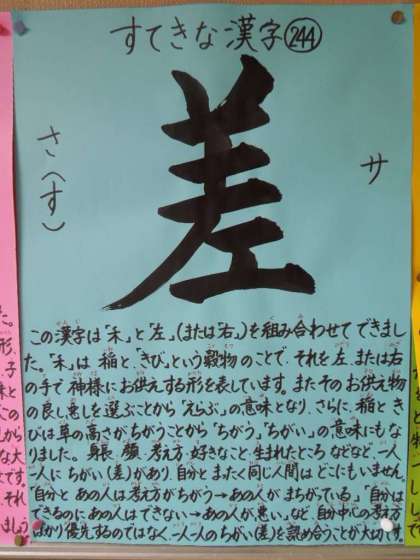 すてきな漢字244
差
サ
さ(す)
この漢字は「禾」と「左」(または「右」)を組み合わせてできまし
た。「禾」は稲と「きび」という穀物のことで、それを左、または右
の手で神様にお供えする形を表しています。またそのお供え物
の良し悪しを選ぶことから「えらぶ」の意味となり、さらに、稲とき
びは草の高さがちがうことから「ちがう」「ちがい」の意味にもな
りました。身長、顔、考え方、好きなこと、生まれたところなどなど、一人
一人にちがい(差)があり、自分とまたく同じ人間はどこにもいません。
「自分とあの人は考え方がちがう→あの人がまちがっている」「自分は
できるのにあの人はできない→あの人が悪い」など、自分中心の考え方
ばかり優先するのではなく、一人一人のちがい(差)を認め合うことが大切です